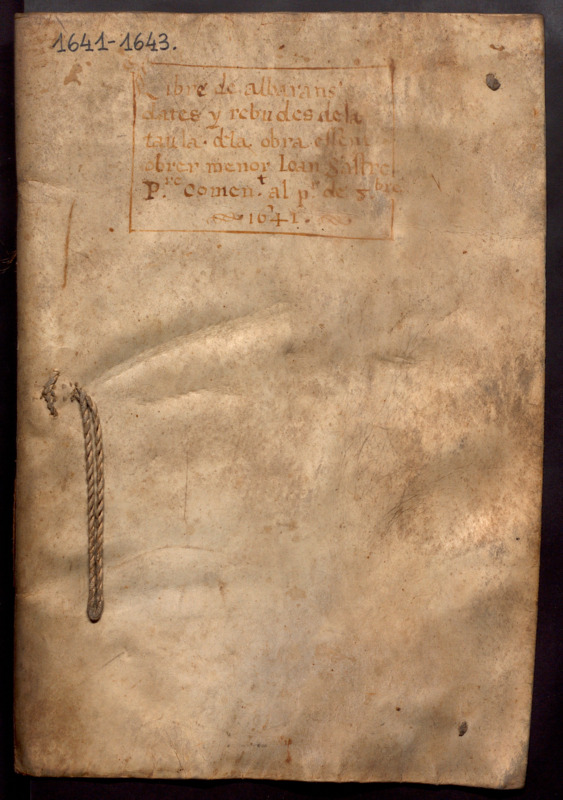 1641-1643.
Libre de albarans
dates y rebudes de la
taula . dla obra essent
obrer menor Ioan Sastre
P.re Comen.t al p.r de 8bre
1641.